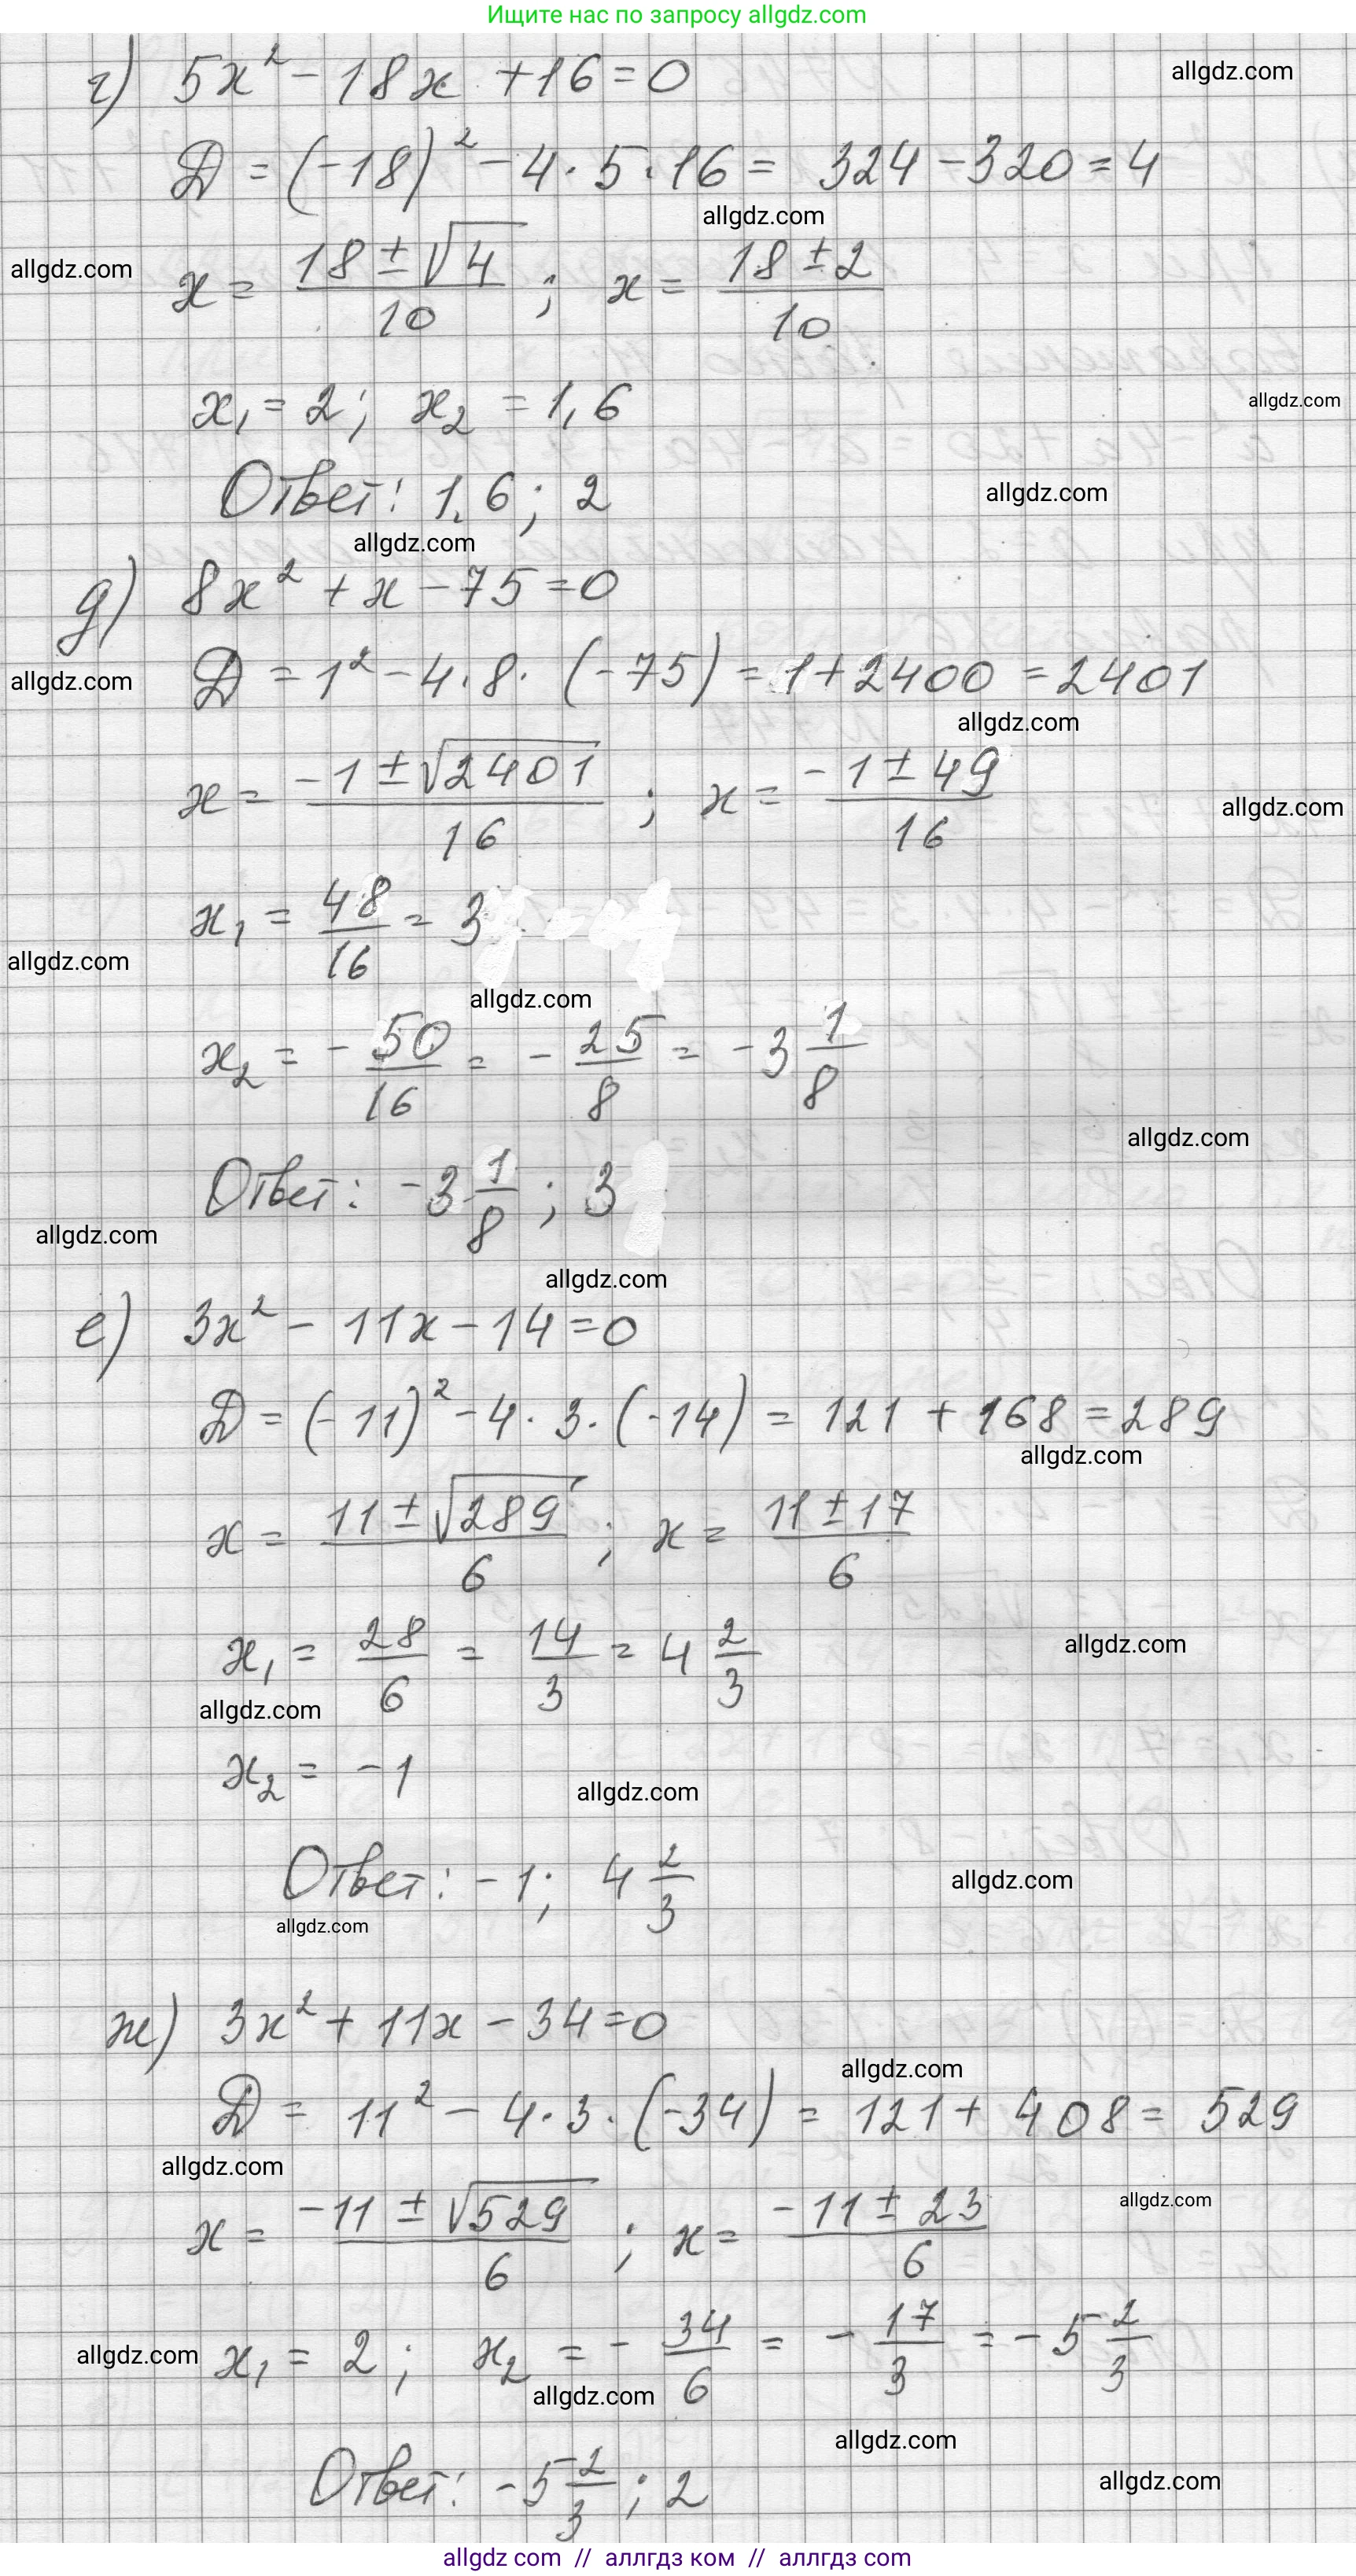 Ищите нас по запросу allgdz.com
г) 5x² - 18x + 16 = 0
allgdz.com
D = (-18)² - 4·5·16 = 324 - 320 = 4
allgdz.com
allgdz.com
x = (18 ± √4)/10 ; x = (18 ± 2)/10
x₁ = 2; x₂ = 1,6
allgdz.com
Ответ: 1,6; 2
allgdz.com
allgdz.com
д) 8x² + x - 75 = 0
D = 1² - 4·8·(-75) = 1 + 2400 = 2401
allgdz.com
allgdz.com
x = (-1 ± √2401)/16 ; x = (-1 ± 49)/16
allgdz.com
x₁ = 48/16 = 3
allgdz.com
allgdz.com
x₂ = - 50/16 = - 25/8 = -3 1/8
allgdz.com
Ответ: -3 1/8 ; 3
allgdz.com
allgdz.com
е) 3x² - 11x - 14 = 0
D = (-11)² - 4·3·(-14) = 121 + 168 = 289
allgdz.com
x = (11 ± √289)/6 ; x = (11 ± 17)/6
x₁ = 28/6 = 14/3 = 4 2/3
allgdz.com
allgdz.com
x₂ = -1
allgdz.com
Ответ: -1; 4 2/3
allgdz.com
allgdz.com
ж) 3x² + 11x - 34 = 0
allgdz.com
D = 11² - 4·3·(-34) = 121 + 408 = 529
allgdz.com
allgdz.com
x = (-11 ± √529)/6 ; x = (-11 ± 23)/6
x₁ = 2; x₂ = - 34/6 = - 17/3 = -5 2/3
allgdz.com
allgdz.com
allgdz.com
Ответ: -5 2/3 ; 2
allgdz.com
allgdz com // аллгдз ком // аллгдз com